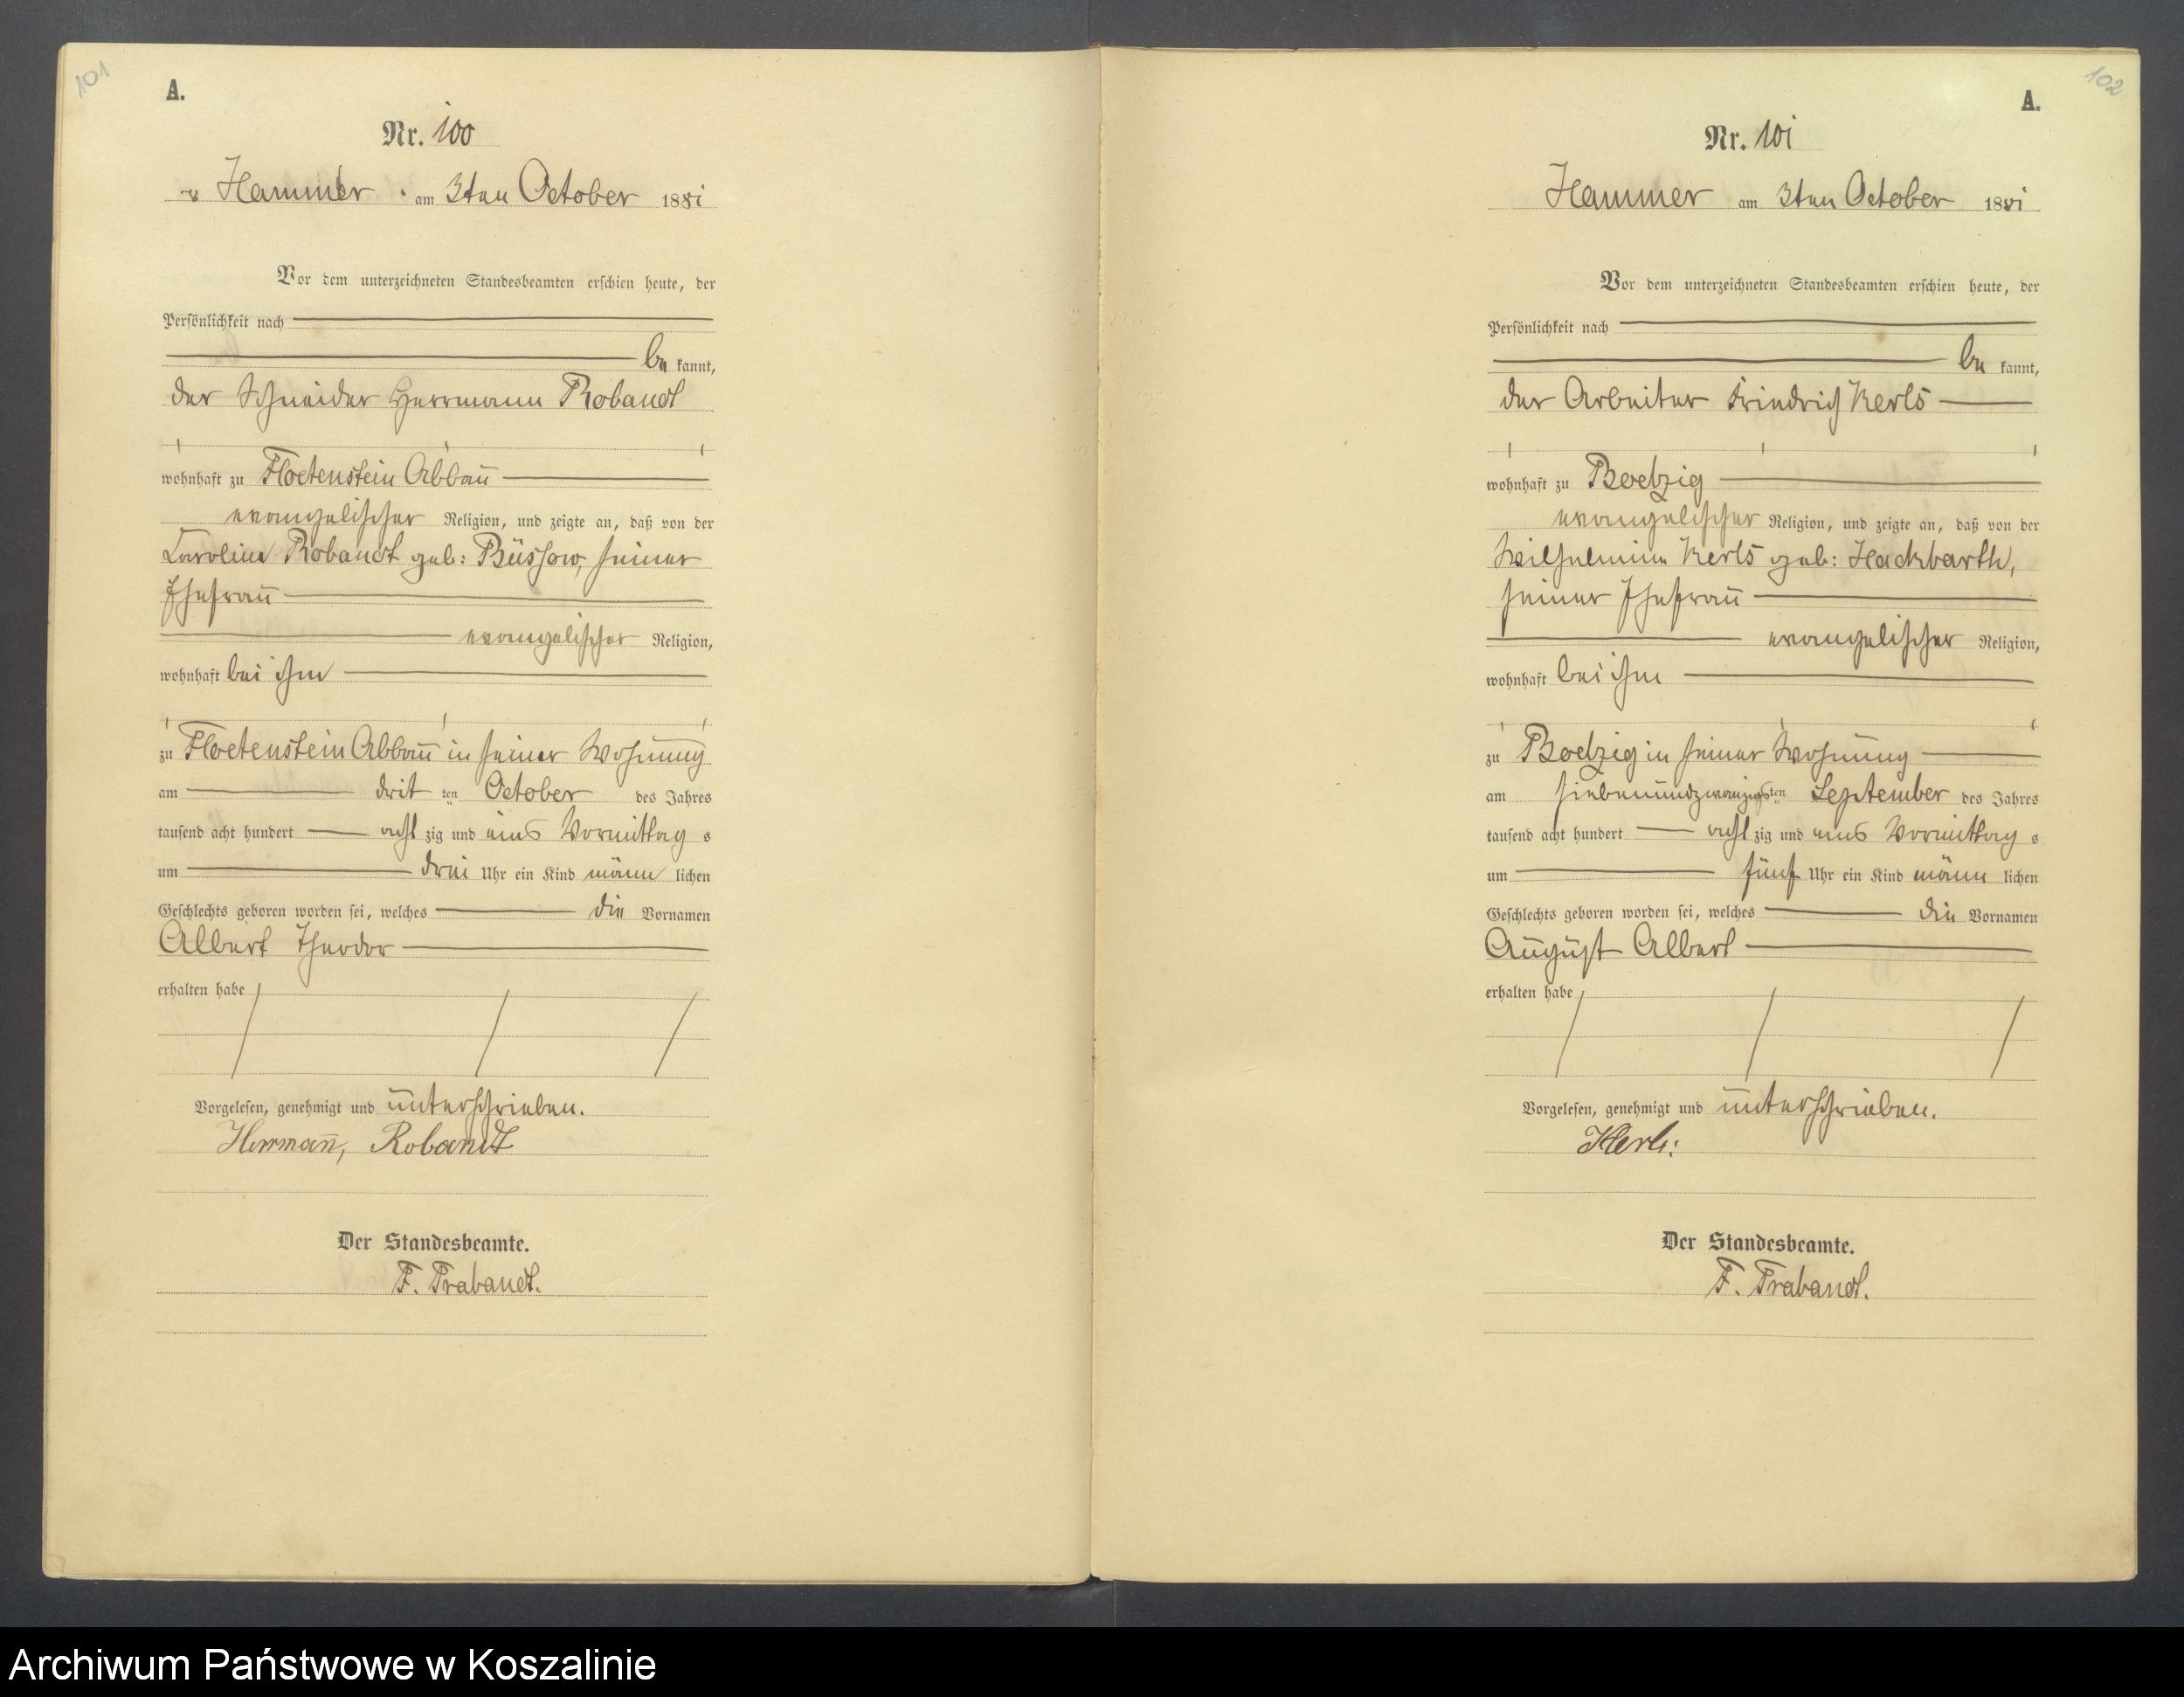 101
A.
Nr. 100
Hammer am 3ten October 1881
Vor dem unterzeichneten Standesbeamten erschien heute, der
Persönlichkeit nach
be kannt,
der Schneider Herrmann Robandt
wohnhaft zu Floetenstein Abbau
evangelischer Religion, und zeigte an, daß von der
Caroline Robandt geb: Büssow, seiner
Ehefrau
evangelischer Religion,
wohnhaft bei ihm
zu Floetenstein Abbau in seiner Wohnung
am drit ten October des Jahres
tausend acht hundert acht zig und eins Vormittag s
um drei Uhr ein Kind männ lichen
Geschlechts geboren worden sei, welches die Vornamen
Albert Theodor
erhalten habe
Vorgelesen, genehmigt und unterschrieben.
Herrmann, Robandt
Der Standesbeamte.
F. Trabandt.
102
A.
Nr. 101
Hammer am 3ten October 1881
Vor dem unterzeichneten Standesbeamten erschien heute, der
Persönlichkeit nach
be kannt,
der Arbeiter Friedrich Kerls
wohnhaft zu Boelzig
evangelischer Religion, und zeigte an, daß von der
Wilhelmine Kerls geb: Hackbarth,
seiner Ehefrau
evangelischer Religion,
wohnhaft bei ihm
zu Boelzig in seiner Wohnung
am siebenundzwanzigsten September des Jahres
tausend acht hundert acht zig und eins Vormittag s
um fünf Uhr ein Kind männ lichen
Geschlechts geboren worden sei, welches die Vornamen
August Albert
erhalten habe
Vorgelesen, genehmigt und unterschrieben.
Kerls:
Der Standesbeamte.
F. Trabandt.
Archiwum Państwowe w Koszalinie